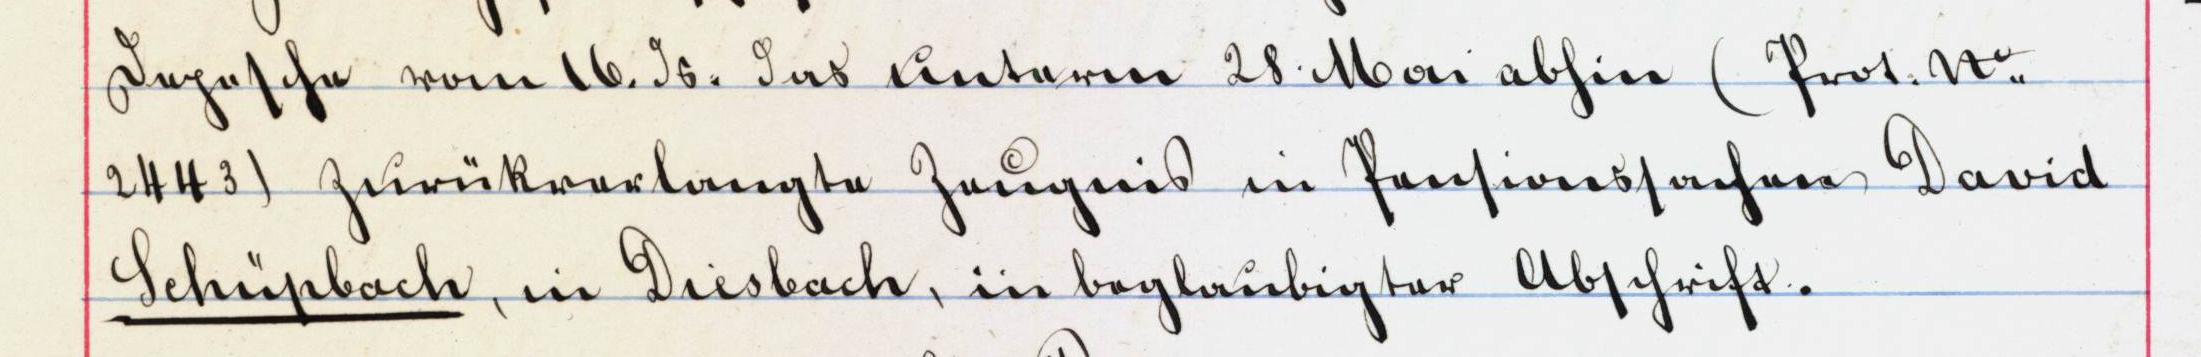 Depesche vom 16. ds. das unterm 28. Mai abhin (Prot. No.
2443) zurükverlangte Zeugnis in Pensionssachen David
Schüpbach, in Diesbach, in beglaubigter Abschrift.